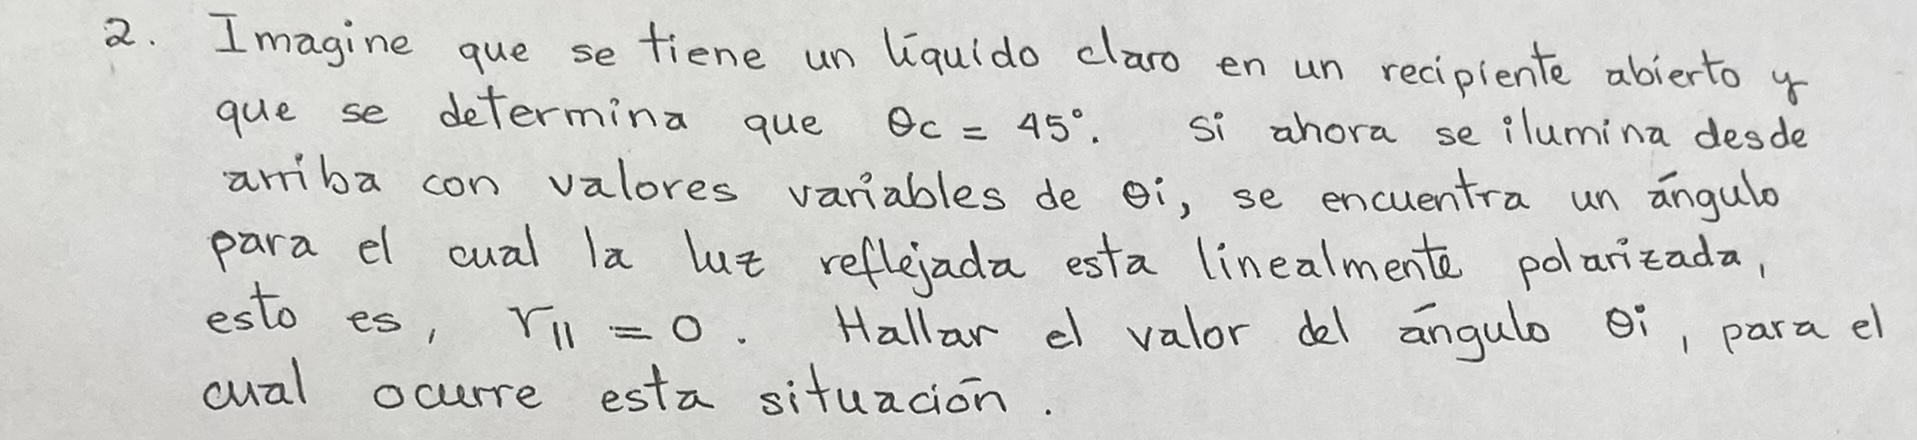 2. Imagine que se tiene un líquido claro en un recipiente abierto y
que se determina que θc = 45°. Si ahora se ilumina desde
arriba con valores variables de θi, se encuentra un ángulo
para el cual la luz reflejada esta linealmente polarizada,
esto es, r∥ = 0. Hallar el valor del ángulo θi, para el
cual ocurre esta situación.